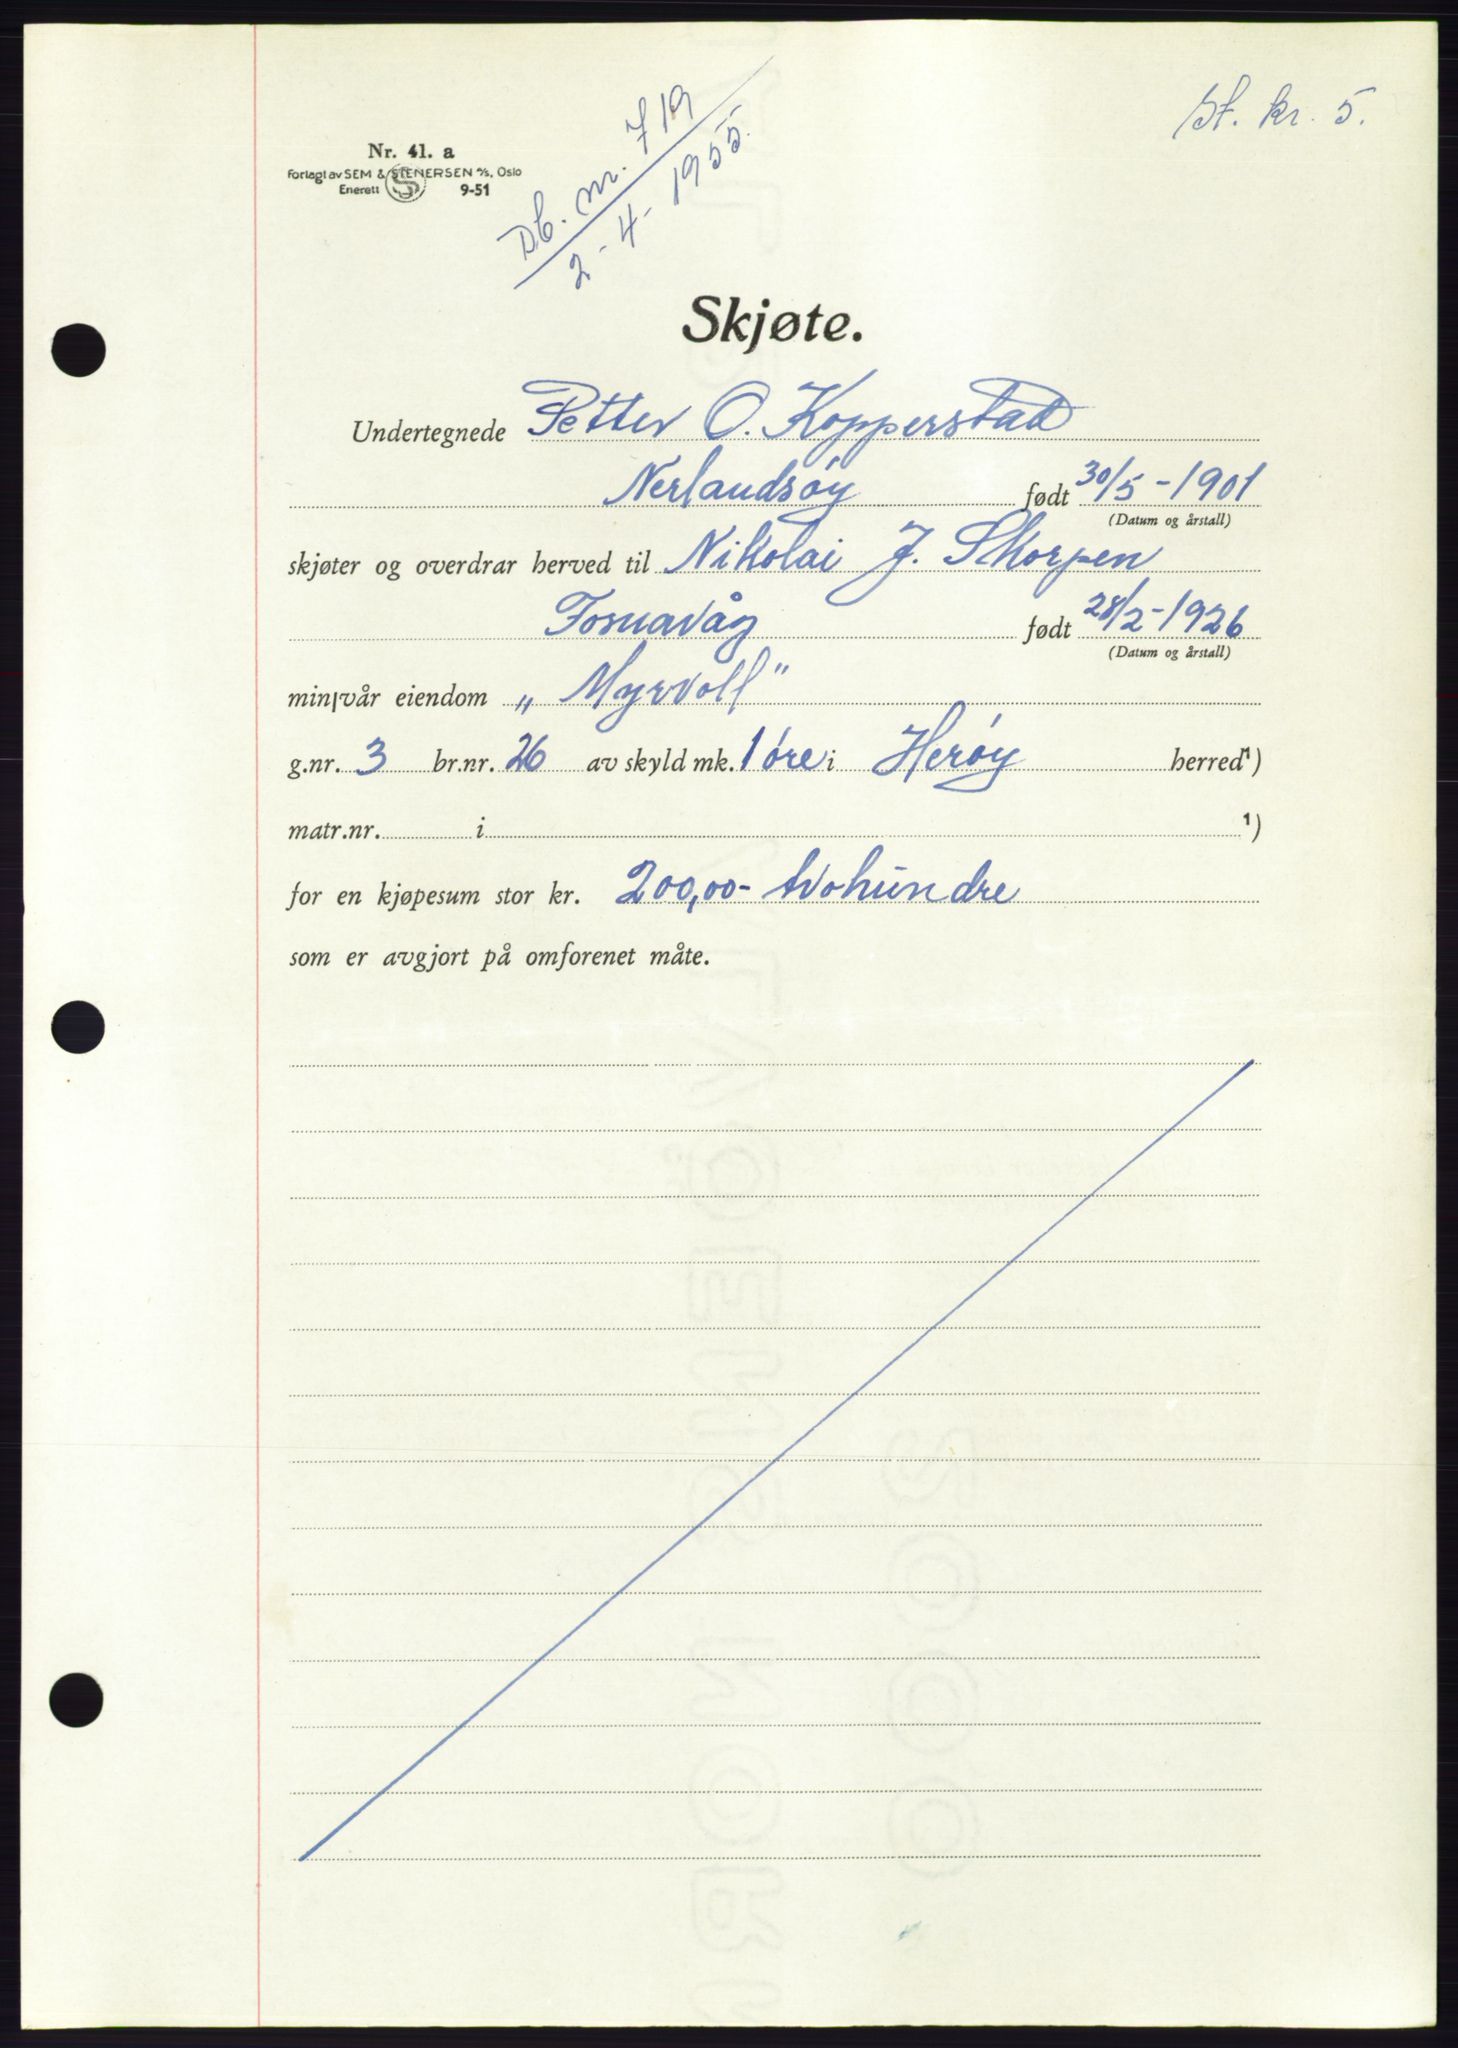 St. kr. 5.
Nr. 41. a
Forlagt av SEM & STENERSEN A/S, Oslo
Enerett S 9-51
Db. nr. 719
2-4-1955.
Skjøte.
Undertegnede Petter O. Kopperstad
Nerlandsøy født 30/5-1901
(Datum og årstall)
skjøter og overdrar herved til Nikolai J. Skorpen
Fosnavåg født 28/2-1926
(Datum og årstall)
min/vår eiendom „Myrvoll"
g.nr. 3 br.nr. 26 av skyld mk. 1 øre i Herøy herred¹)
matr.nr. i ¹)
for en kjøpesum stor kr. 200,00- tvohundre
som er avgjort på omforenet måte.